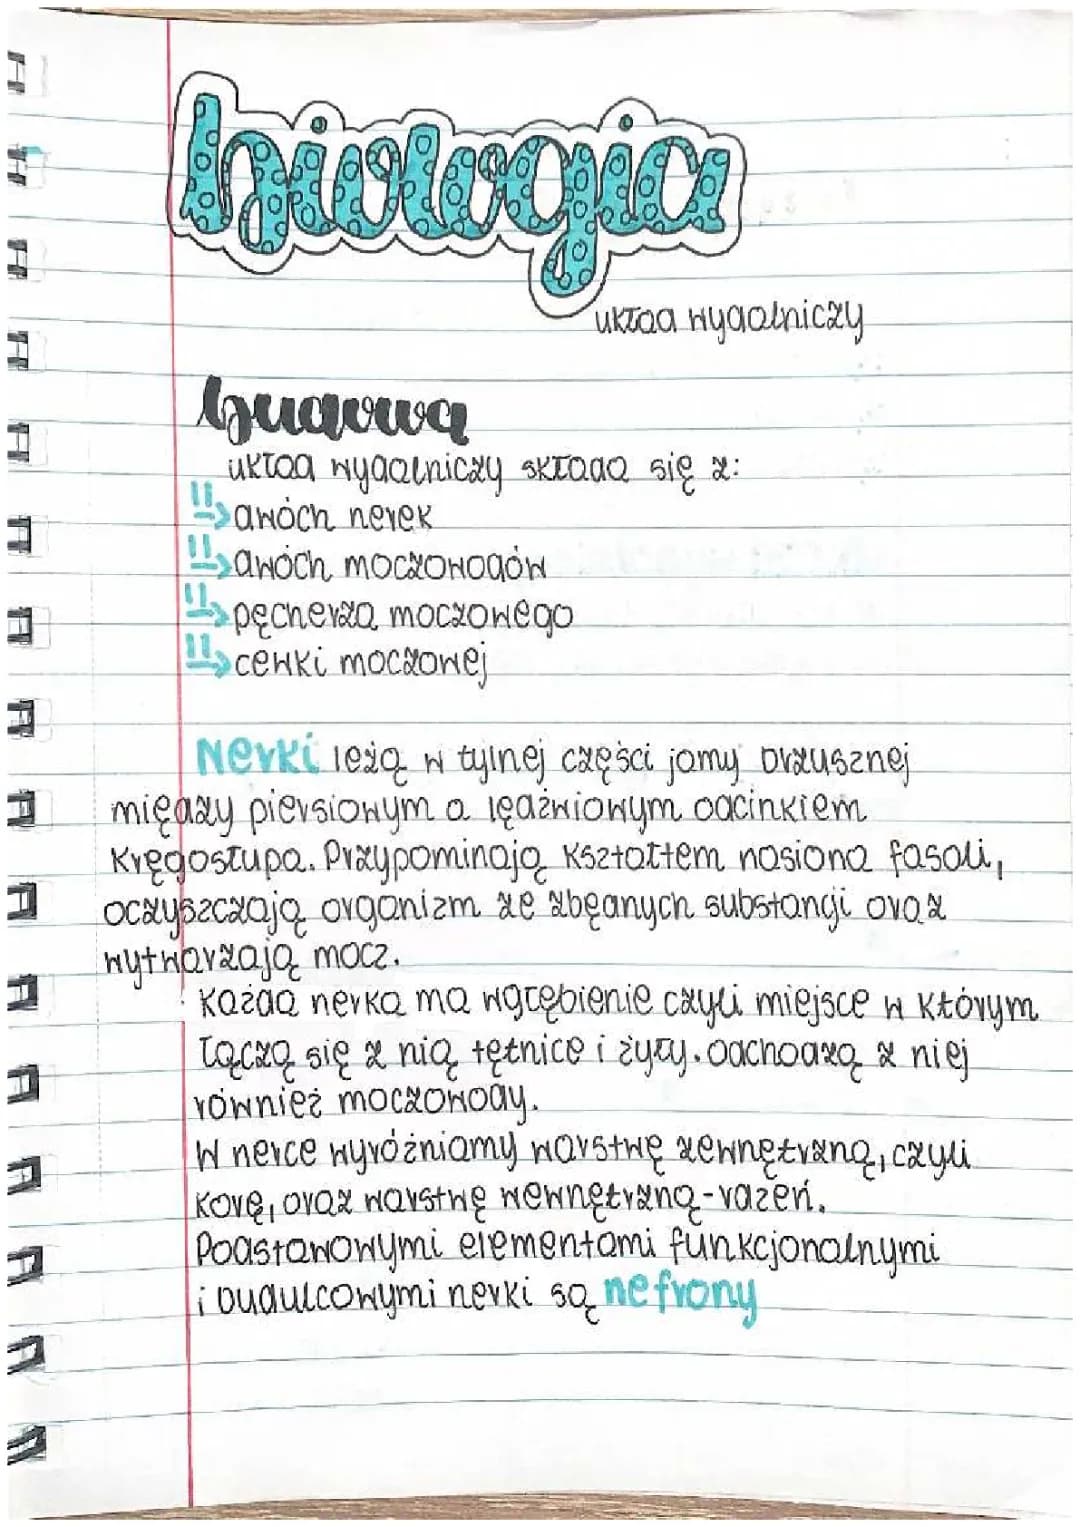 biologia
układ wydalniczy
budowa
układ wydalniczy składa się z:
dwóch nerek
dwóch moczowodów
pęcherza moczowego
cewki moczowej
Nerki leżą w tylnej części jamy brzusznej
między piersiowym a lędźwiowym odcinkiem
kręgosłupa. Przypominają kształtem nasiona fasoli,
oczyszczają organizm ze zbędnych substancji oraz
wytwarzają mocz.
Każda nerka ma wgłębienie czyli miejsce w którym
łączą się z nią tętnice i żyły. Odchodzą z niej
również moczowody.
W nerce wyróżniamy warstwę zewnętrzną, czyli
korę, oraz warstwę wewnętrzną-rdzeń.
Podstawowymi elementami funkcjonalnymi
i budulcowymi nerki są nefrony